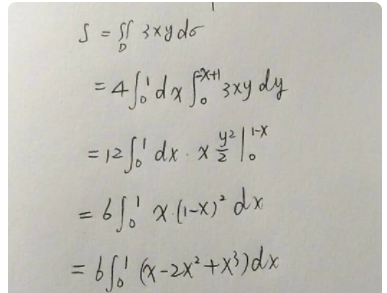 S = ∬_D 3xydσ
= 4∫₀¹ dx ∫₀^(-x+1) 3xy dy
= 12∫₀¹ dx · x y²/2 |₀^(1-x)
= 6∫₀¹ x·(1-x)² dx
= 6∫₀¹ (x-2x²+x³)dx